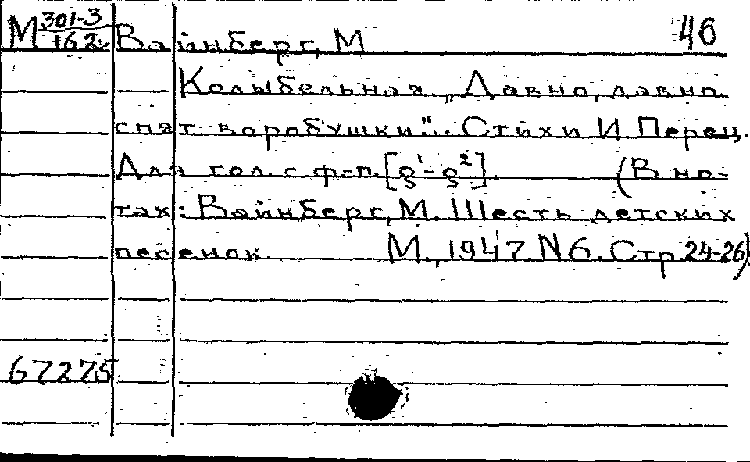 М 301-3/162 Вайнберг, М 46
Колыбельная „Давно, давно
спят воробушки". Стихи И Перец.
Для гол. с ф-п. [g¹-g²]. (В но-
тах: Вайнберг, М. Шесть детских
песенок. М., 1947 N6. Стр 24-26)
67275